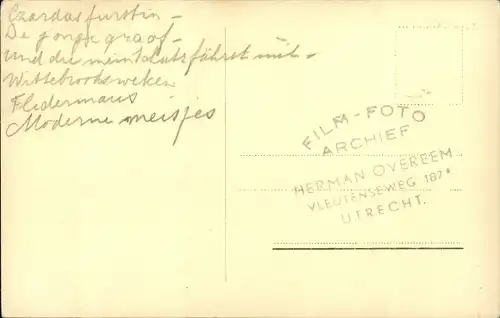 Czardasfurstin -
De jonge graaf -
Und du mein Schatz fährst mit -
Wittebroodsweken
Fledermaus
Moderne meisjes
FILM-FOTO
ARCHIEF
HERMAN OVEREEM
VLEUTENSEWEG 187ᵃ
UTRECHT.